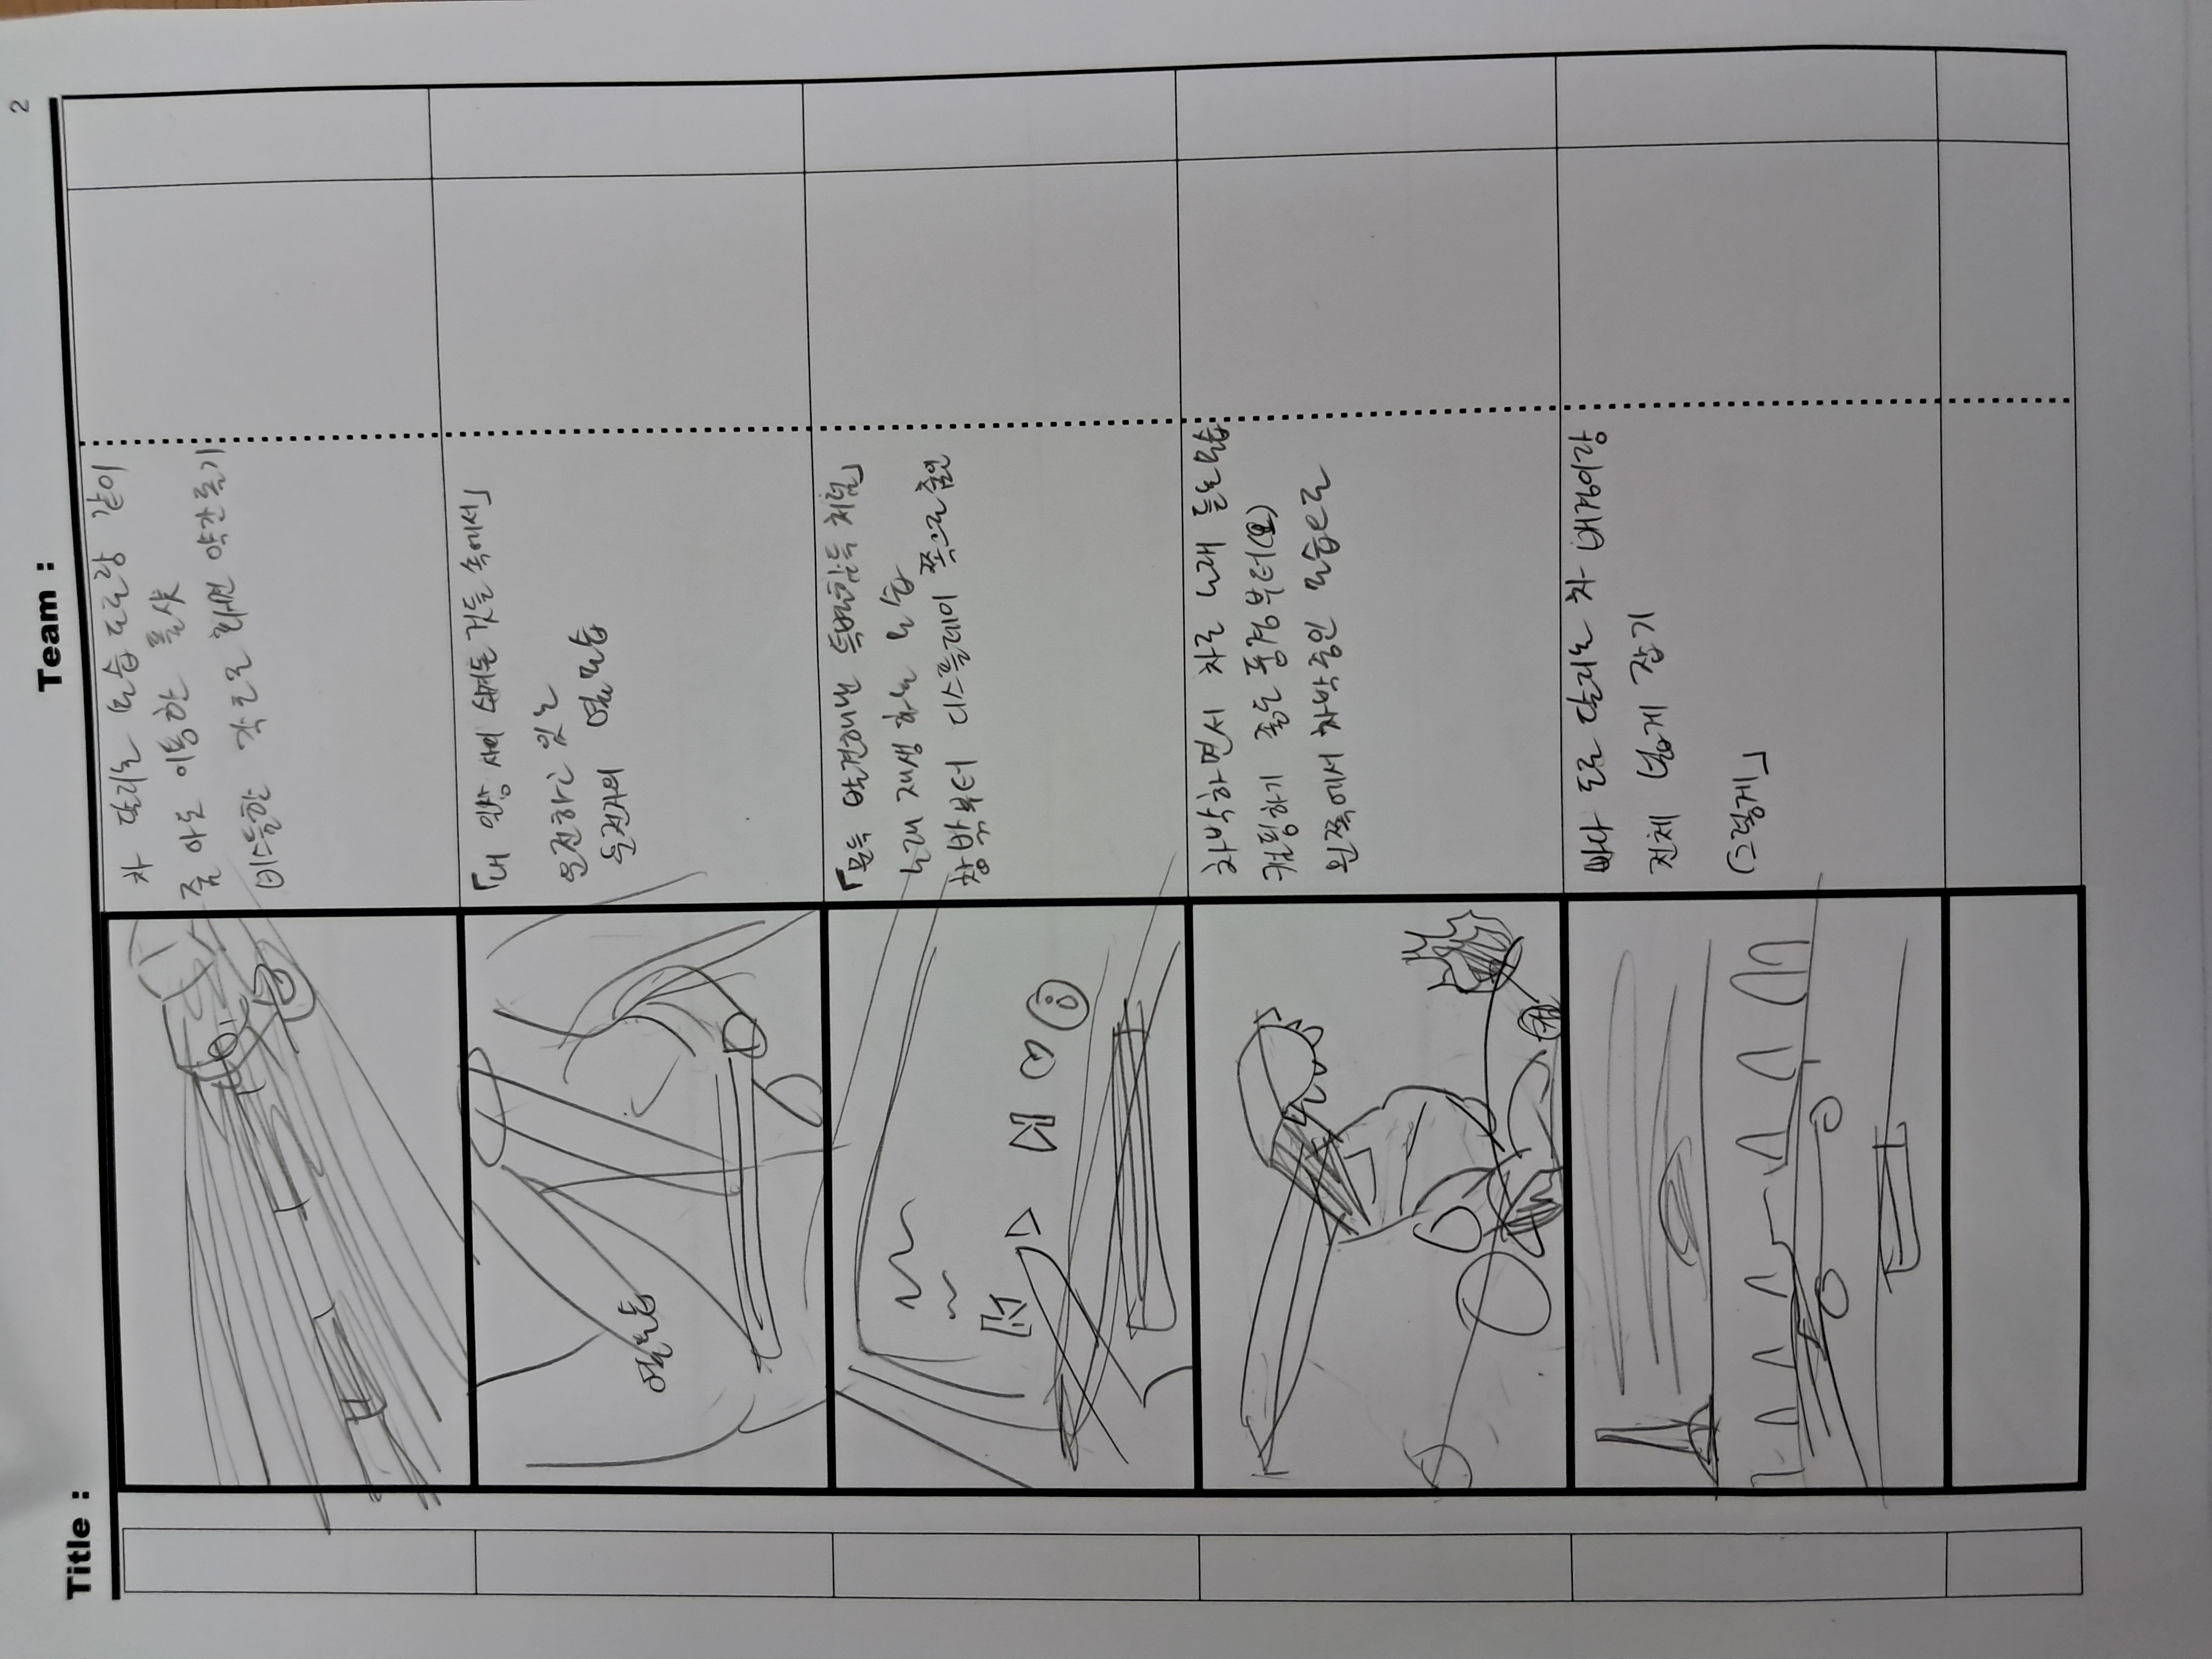 2
Title :
Team :
차 달리는 모습 도로랑 같이
줌 아웃 이용한 풀샷
비스듬한 각도로 화면 약간 틀기
옆모습
「내 일상 사이 숨겨둔 것들 속에서」
운전하고 있는
운전자의 옆모습
「문득 발견해낸 특별함들 처럼」
노래 재생 하는 모습
창밖부터 디스플레이 쪽으로 줌인
차박하면서 차로 노래 듣는 모습
캠핑하기 좋은 풍경부터
왼쪽에서 차박중인 모습으로
컵
바다 도로 달리는 차 배경이랑
전체 넓게 잡기
「그렇게」